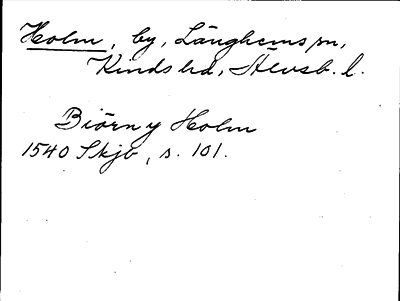 Holm, by, Länghems sn,
Kinds hd, Älvsb. l.
Biörn y Holm
1540 Skjb, s. 101.